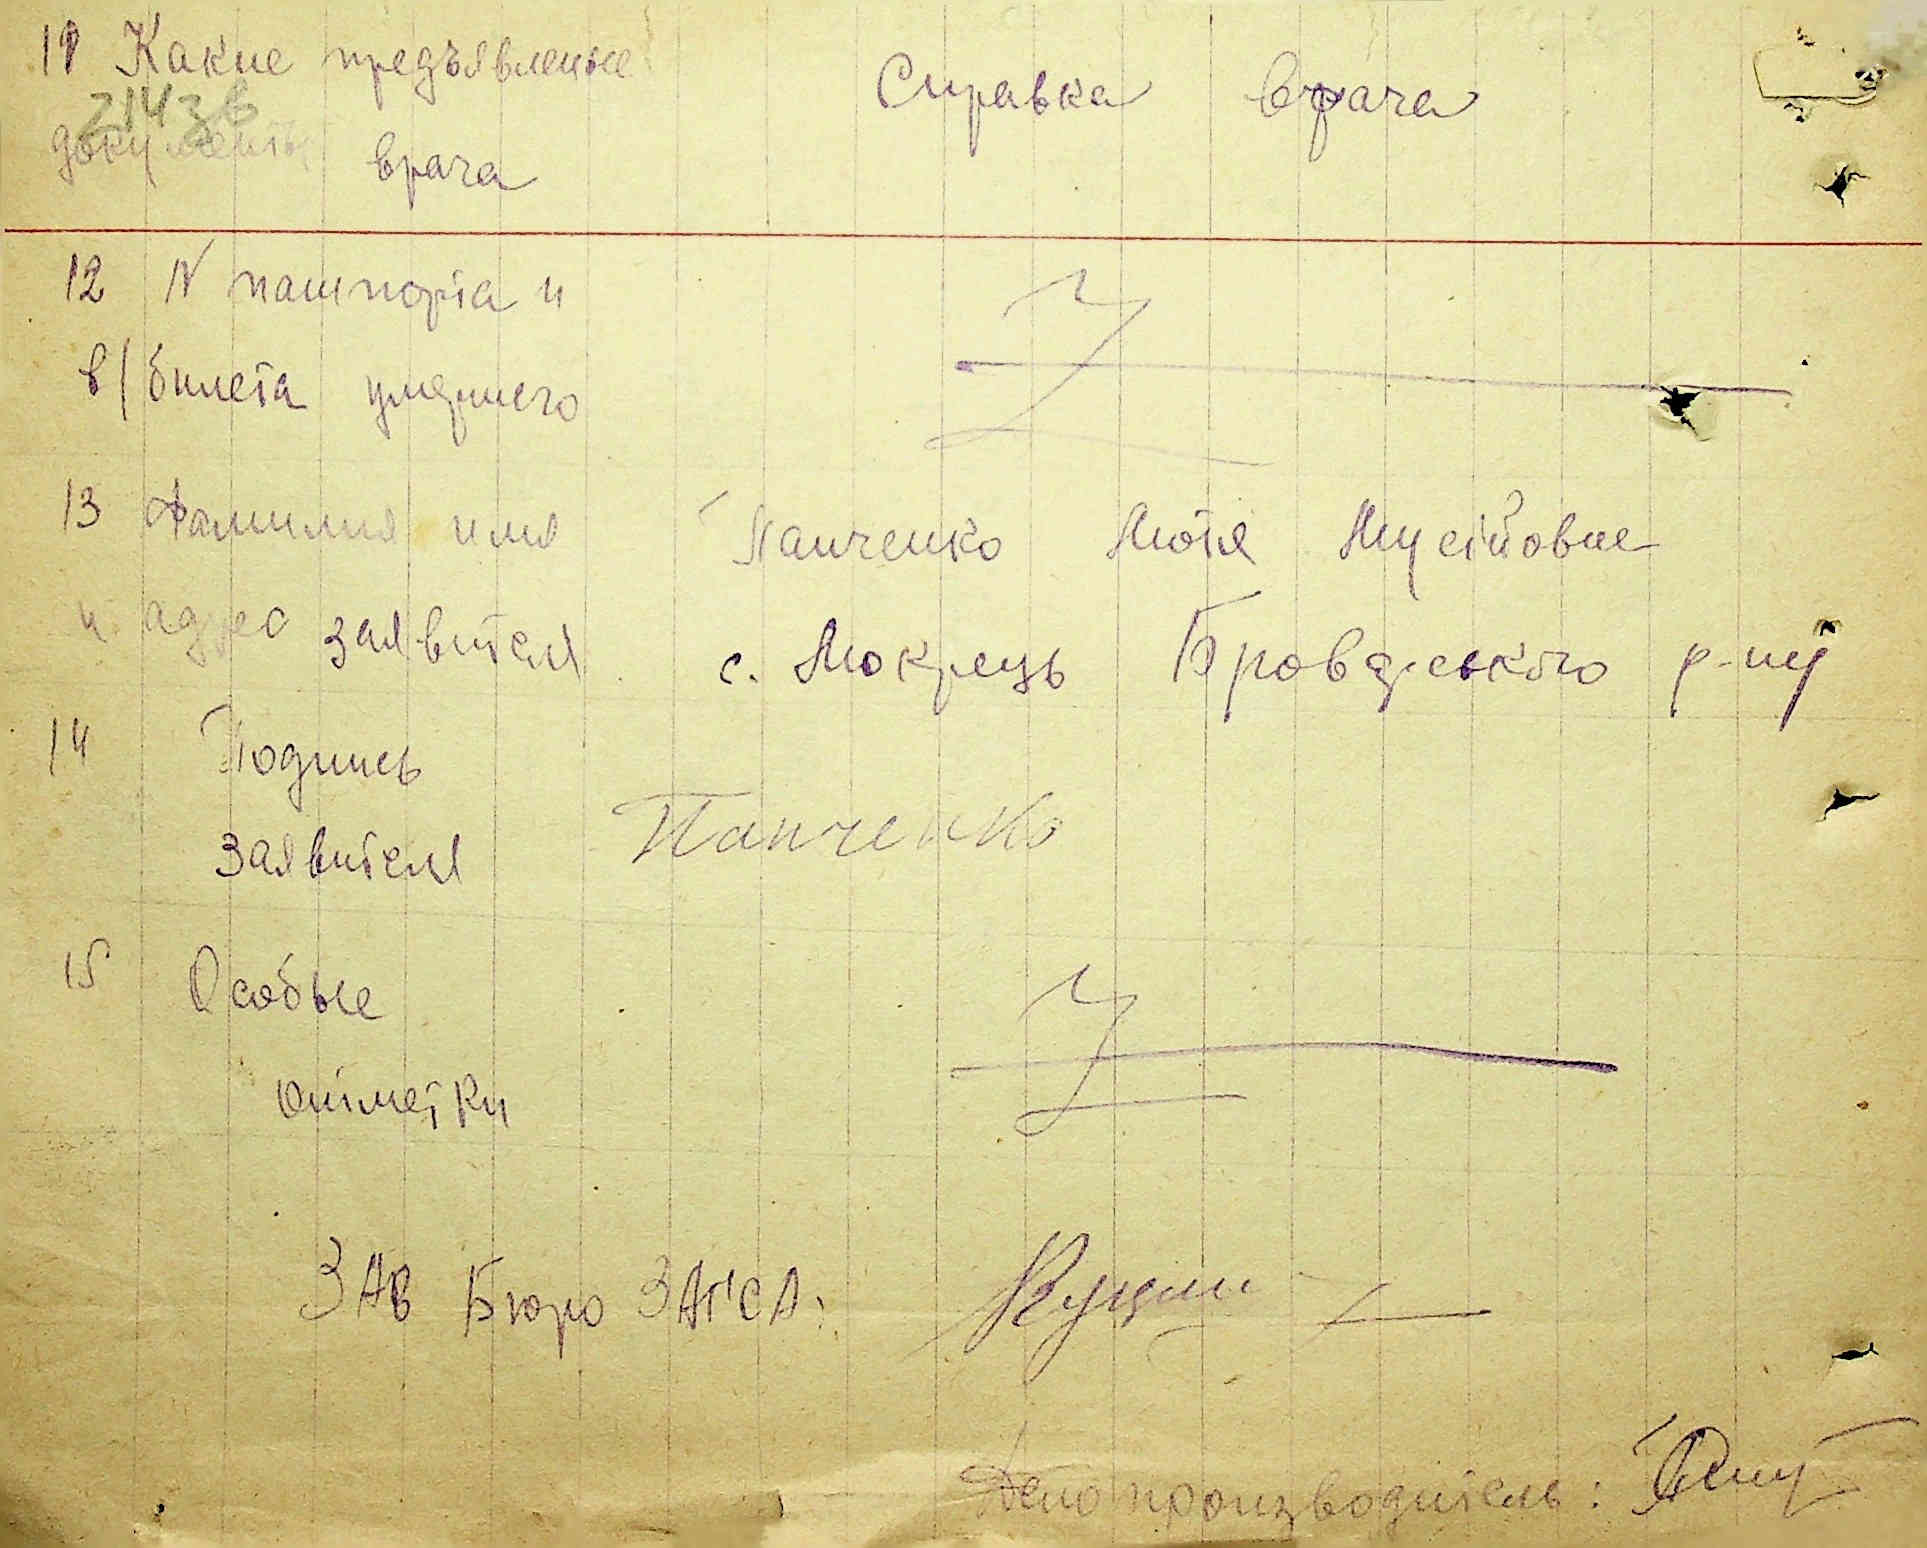 11 Какие предъявленые Справка врача
документы врача
12 N пашпорта и
в/билета умершего
13 Фамилия имя Панченко Мотя Мусійовна
и адрес заявителя с. Мокрець Бровдрського р-ну
14 Подпись
заявителя Панченко
15 Особые
отметки
ЗАВ Бюро ЗАГСА:
Делопроизводитель: